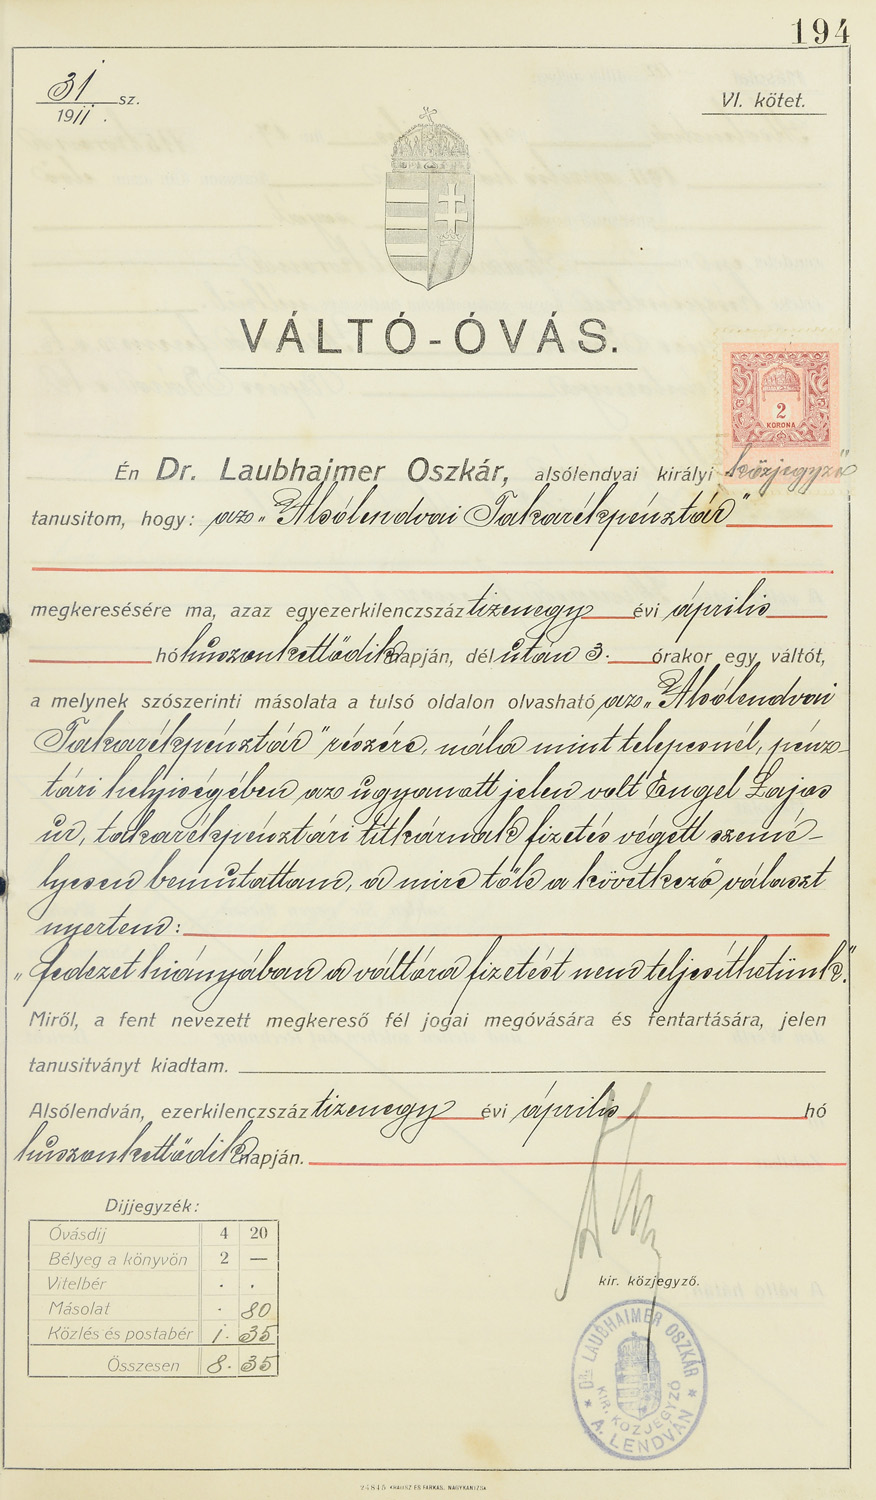 194
31 sz.
1911.
VI. kötet.
VÁLTÓ-ÓVÁS.
2
KORONA
Én Dr. Laubhaimer Oszkár, alsólendvai királyi közjegyző
tanusitom, hogy: az „Alsólendvai Takarékpénztár"
megkeresésére ma, azaz egyezerkilenczszáz tizenegy évi április
hó huszonkettődik napján, dél után 3. órakor egy váltót,
a melynek szószerinti másolata a tulsó oldalon olvasható az „Alsólendvai
Takarékpénztár" részére, nála mint telepesnél, pénz-
tári helyiségében az ugyanott jelen volt Engel Lajos
úr, takarékpénztári titkárnak fizetés végett szemé-
lyesen bemutattam, a mire tőle a következő választ
nyertem:
„fedezet hiányában a váltóra fizetést nem teljesíthetünk."
Miről, a fent nevezett megkereső fél jogai megóvására és fentartására, jelen
tanusitványt kiadtam.
Alsólendván, ezerkilenczszáz tizenegy évi április hó
huszonkettődik napján.
Dijjegyzék:
Óvásdij 4 20
Bélyeg a könyvön 2 —
Vitelbér . .
Másolat . 80
Közlés és postabér 1. 35
Összesen 8. 35
kir. közjegyző.
Dr. LAUBHAIMER OSZKÁR
KIR. KÖZJEGYZŐ
* A. LENDVÁN *
24845 KRAUSZ ÉS FARKAS, NAGYKANIZSA